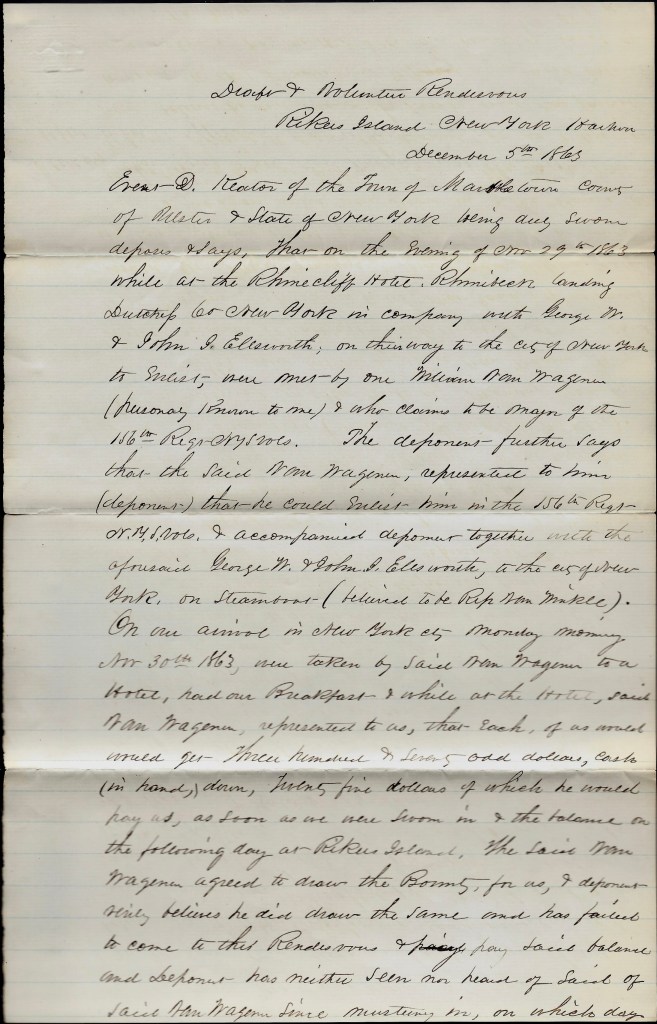 Draft & Volunteer Rendezvous
Rikers Island New York Harbor
December 5th 1863
D. Keator of the Town of Marbletown County
of Ulster & State of New York being duly sworn
deposes & says, that on the Evening of Nov 29th 1863
while at the Rhinecliff Hotel, Rhinibeck landing
Dutchess Co New York in company with George W.
& John J. Ellsworth, on their way to the city of New York
to Enlist, were met by one William Van Wagenen
(personaly known to me) & who claims to be Major of the
156th Regt NYSvols. The deponent further says
that the said Van Wagenen, represented to him
(deponent) that he could Enlist him in the 156th Regt
N.Y.S. vols. & accompanied deponent together with the
aforesaid George W. & John J. Ellsworth, to the city of New
York. on Steamboat (believed to be Rip Van Winkle).
On our arrival in New York city Monday morning
Nov 30th 1863, were taken by said Van Wagenen to a
Hotel, had our Breakfast & while at the Hotel, said
Van Wagenen, represented to us, that Each, of us would
would get Three hundred & Seventy odd dollars, cash
(in hand,) down, Twenty five dollars of which he would
pay us, as soon as we were sworn in & the balance on
the following day at Rikers Island. The said Van
Wagenen agreed to draw the Bounty, for us, & deponent
verily believes he did draw the same and has failed
to come to this Rendezvous & pay said balance
and Deponent has neither seen nor heard of said of
said Van Wagenen since mustering in, on which day